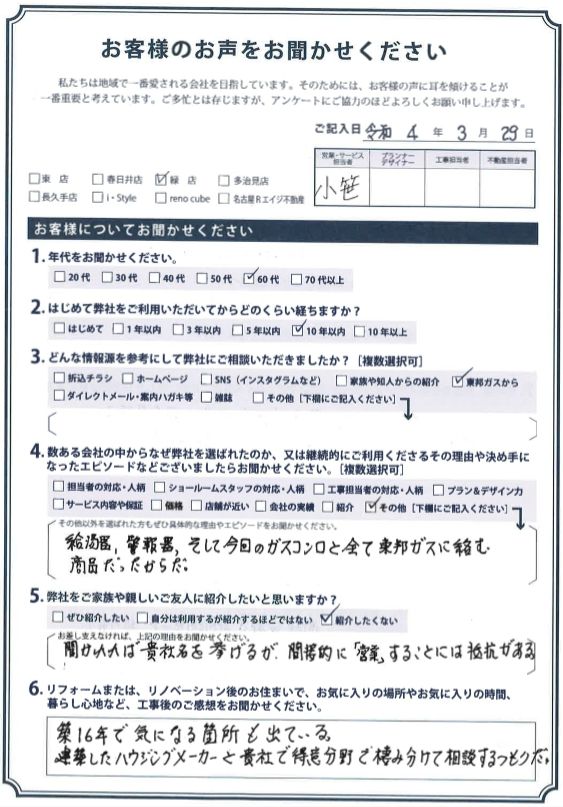 お客様のお声をお聞かせください
私たちは地域で一番愛される会社を目指しています。そのためには、お客様の声に耳を傾けることが
一番重要と考えています。ご多忙とは存じますが、アンケートにご協力のほどよろしくお願い申し上げます。
ご記入日 令和 4 年 3 月 29 日
営業・サービス担当者 プランナーデザイナー 工事担当者 不動産担当者
小笹
□東 店 □春日井店 ☑緑 店 □多治見店
□長久手店 □i・Style □reno cube □名古屋Rエイジ不動産
お客様についてお聞かせください
1. 年代をお聞かせください。
□20代 □30代 □40代 □50代 ☑60代 □70代以上
2. はじめて弊社をご利用いただいてからどのくらい経ちますか?
□はじめて □1年以内 □3年以内 □5年以内 ☑10年以内 □10年以上
3. どんな情報源を参考にして弊社にご相談いただきましたか?[複数選択可]
□折込チラシ □ホームページ □SNS(インスタグラムなど) □家族や知人からの紹介 ☑東邦ガスから
□ダイレクトメール・案内ハガキ等 □雑誌 □その他[下欄にご記入ください]
4. 数ある会社の中からなぜ弊社を選ばれたのか、又は継続的にご利用くださるその理由や決め手に
なったエピソードなどございましたらお聞かせください。[複数選択可]
□担当者の対応・人柄 □ショールームスタッフの対応・人柄 □工事担当者の対応・人柄 □プラン&デザイン力
□サービス内容や保証 □価格 □店舗が近い □会社の実績 □紹介 ☑その他[下欄にご記入ください]
その他以外を選ばれた方もぜひ具体的な理由やエピソードをお聞かせください。
給湯器、警報器、そして今回のガスコンロと全て東邦ガスに絡む
商品だったからだ。
5. 弊社をご家族や親しいご友人に紹介したいと思いますか?
□ぜひ紹介したい □自分は利用するが紹介するほどではない ☑紹介したくない
お差し支えなければ、上記の理由をお聞かせください。
聞かれれば貴社名を挙げるが、間接的に「営業」することには抵抗がある
6. リフォームまたは、リノベーション後のお住まいで、お気に入りの場所やお気に入りの時間、
暮らし心地など、工事後のご感想をお聞かせください。
築16年で気になる箇所も出ている。
建築したハウジングメーカーと貴社で得意分野で棲み分けて相談するつもりだ。